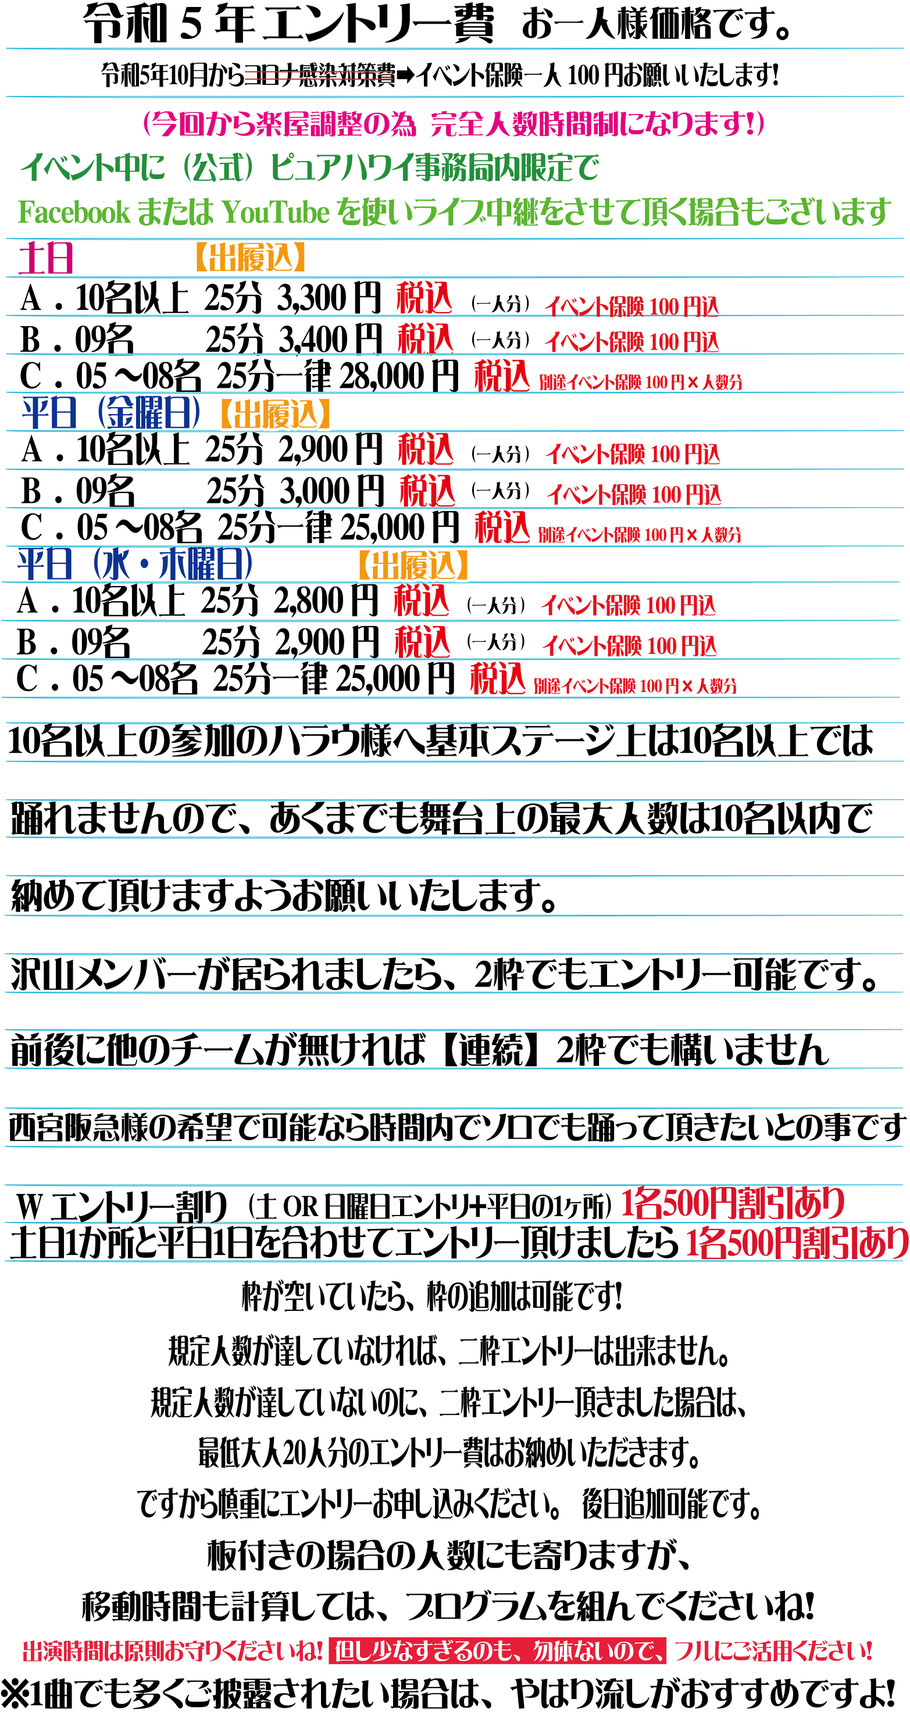 令和５年エントリー費 お一人様価格です。
令和5年10月からコロナ感染対策費➡イベント保険一人 100 円お願いいたします!
(今回から楽屋調整の為 完全人数時間制になります!)
イベント中に（公式）ピュアハワイ事務局内限定で
Facebook または YouTube を使いライブ中継をさせて頂く場合もございます
土日 【出履込】
A．10名以上 25分 3,300 円 税込 （一人分） イベント保険 100 円込
B．09名 25分 3,400 円 税込 （一人分） イベント保険 100 円込
C．05～08名 25分一律 28,000 円 税込 別途イベント保険 100 円×人数分
平日（金曜日）【出履込】
A．10名以上 25分 2,900 円 税込 （一人分） イベント保険 100 円込
B．09名 25分 3,000 円 税込 （一人分） イベント保険 100 円込
C．05～08名 25分一律 25,000 円 税込 別途イベント保険 100 円×人数分
平日（水・木曜日） 【出履込】
A．10名以上 25分 2,800 円 税込 （一人分） イベント保険 100 円込
B．09名 25分 2,900 円 税込 （一人分） イベント保険 100 円込
C．05～08名 25分一律 25,000 円 税込 別途イベント保険 100 円×人数分
10名以上の参加のハラウ様へ基本ステージ上は10名以上では
踊れませんので、あくまでも舞台上の最大人数は10名以内で
納めて頂けますようお願いいたします。
沢山メンバーが居られましたら、2枠でもエントリー可能です。
前後に他のチームが無ければ【連続】2枠でも構いません
西宮阪急様の希望で可能なら時間内でソロでも踊って頂きたいとの事です
W エントリー割り（土 OR 日曜日エントリ+平日の1ヶ所）1名500円割引あり
土日1か所と平日1日を合わせてエントリー頂けましたら 1名500円割引あり
枠が空いていたら、枠の追加は可能です!
規定人数が達していなければ、二枠エントリーは出来ません。
規定人数が達していないのに、二枠エントリー頂きました場合は、
最低大人20人分のエントリー費はお納めいただきます。
ですから慎重にエントリーお申し込みください。 後日追加可能です。
板付きの場合の人数にも寄りますが、
移動時間も計算しては、プログラムを組んでくださいね!
出演時間は原則お守りくださいね! 但し少なすぎるのも、勿体ないので、 フルにご活用ください!
※1曲でも多くご披露されたい場合は、やはり流しがおすすめですよ!